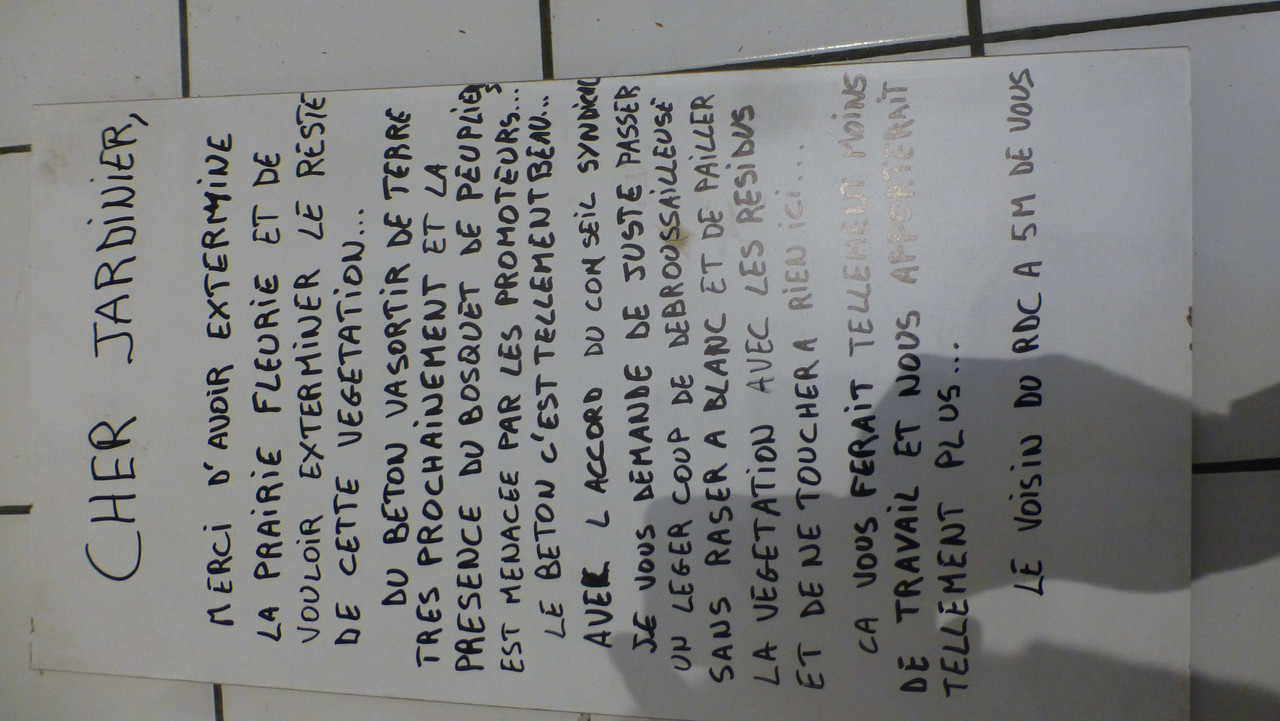 CHER JARDINIER,
MERCI D'AVOIR EXTERMINE
LA PRAIRIE FLEURIE ET DE
VOULOIR EXTERMINER LE RESTE
DE CETTE VEGETATION...
DU BETON VA SORTIR DE TERRE
TRES PROCHAINEMENT ET LA
PRESENCE DU BOSQUET DE PEUPLIERS
EST MENACEE PAR LES PROMOTEURS...
LE BETON C'EST TELLEMENT BEAU...
AVEK L ACCORD DU CONSEIL SYNDICAL
JE VOUS DEMANDE DE JUSTE PASSER
UN LEGER COUP DE DEBROUSSAILLEUSE
SANS RASER A BLANC ET DE PAILLER
LA VEGETATION AVEC LES RESIDUS
ET DE NE TOUCHER A RIEN ICI...
CA VOUS FERAIT TELLEMENT MOINS
DE TRAVAIL ET NOUS APPORTERAIT
TELLEMENT PLUS...
LE VOISIN DU RDC A 5M DE VOUS